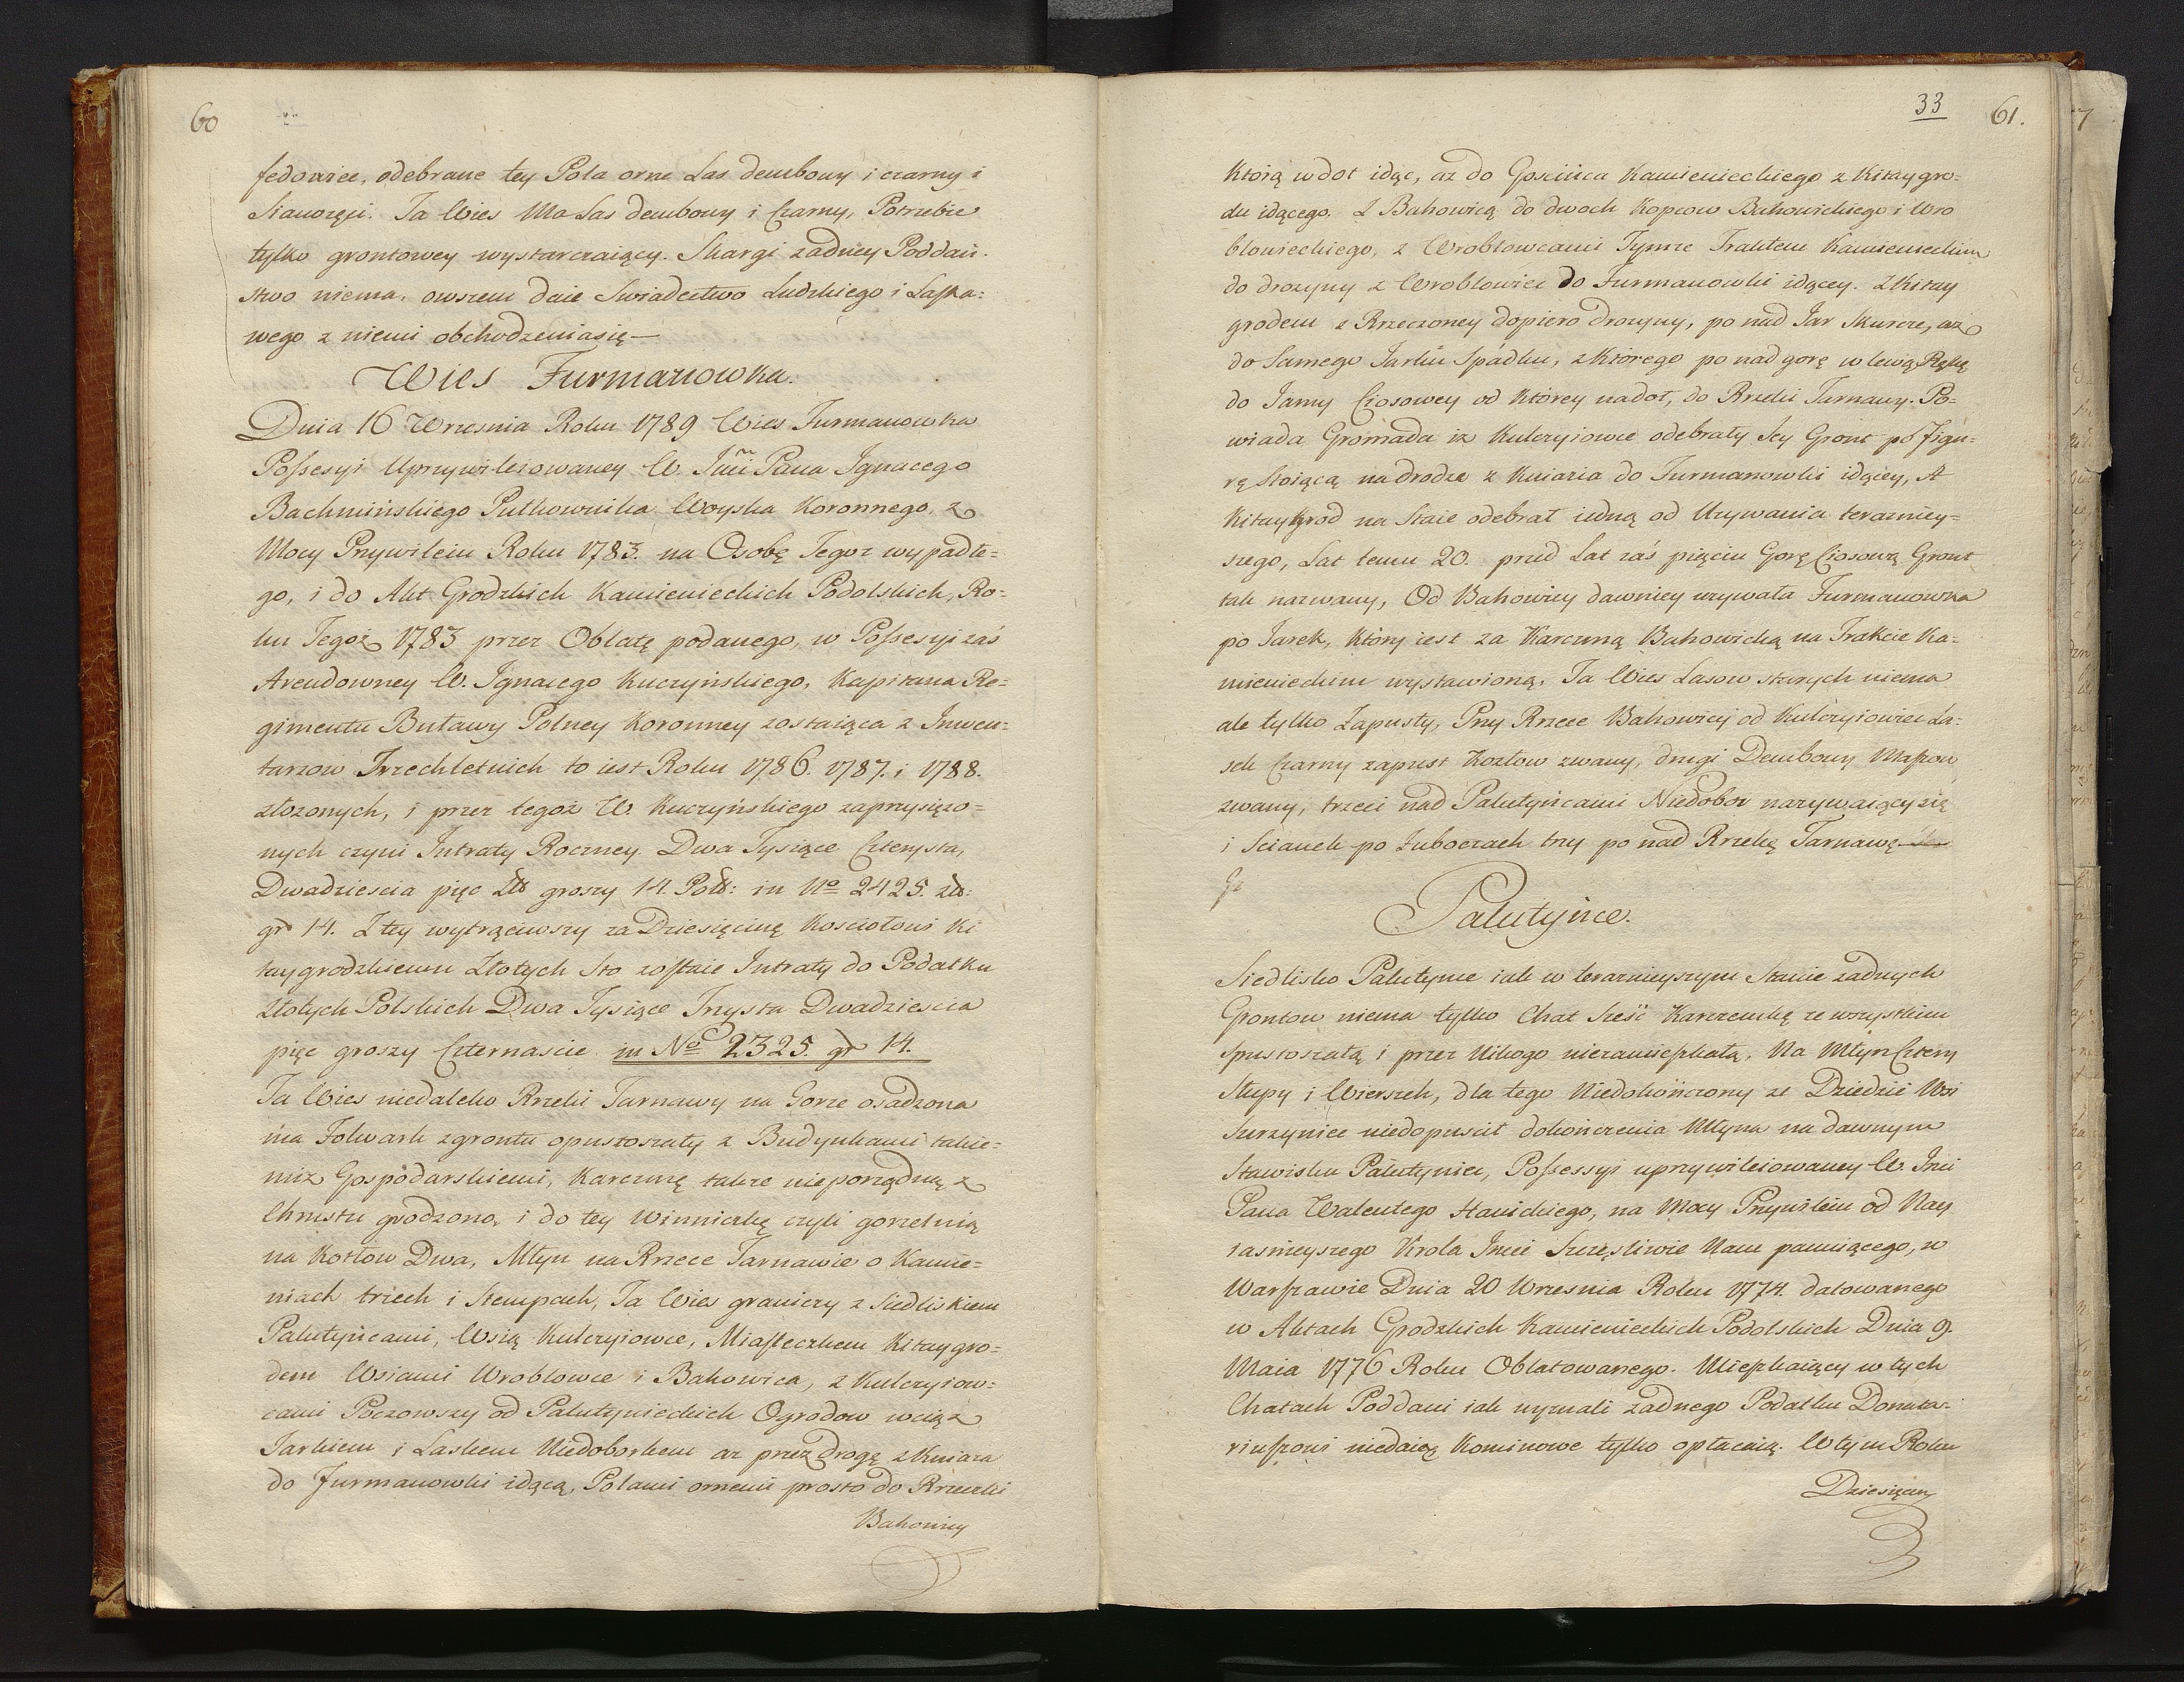 60
fedowce, odebrane tey Pola orne Las dembowy i czarny i
Sianozęci. Ta Wies Ma Las dembowy i Czarny, Potrzebie
tylko grontowey wystarczaiący. Skargi zadney Poddań-
stwo niema, owszem daie Swiadectwo Ludzkiego i Laska:
wego z niemi obchodzeniasię—
Wies Furmanowka.
Dnia 16 Wrzesnia Roku 1789 Wies Furmanowka
Possesyi Uprzywileiowaney W. Jmci Pana Ignacego
Bachmińskiego Pułkownika Woyska Koronnego, z
Mocy Przywileiu Roku 1783. na Osobę Tegoz wypadłe-
go, i do Akt Grodzkich Kamienieckich Podolskich, Ro-
ku Tegoż 1783 przez Oblatę podanego, w Possesyi zaś
Arendowney W. Ignacego Kuczyńskiego, Kapitana Re-
gimentu Buławy Polney Koronney zostaiąca z Inwen-
tarzow Trzechletnich to iest Roku 1786. 1787. i 1788.
złozonych, i przez tegoż W. Kuczyńskiego zaprzysięzo-
nych czyni Intraty Roczney Dwa Tysiące Czterysta,
Dwadziescia pięc Złt groszy 14. Pols: in No 2425. złt:
gr 14. Z tey wytrąciwszy za Dziesięcinę Kosciołowi Ki
taygrodzkiemu Złotych Sto zostaie Intraty do Podatku
Złotych Polskich Dwa Tysiące Trzysta Dwadziescia
pięc groszy Czternascie in No 2325. gr 14.
Ta Wies niedaleko Rzeki Tarnawy na Gorze osadzona
ma Folwark zgrontu opustoszały z Budynkami takie-
miz Gospodarskiemi, Karczmę takze nieporządną z
Chrustu grodzoną, i do tey Winniczkę czyli gorzelnią
na Kotłow Dwa, Młyn na Rzece Tarnawie o Kamie-
niach trzech i Stempach, Ta Wies graniczy z Siedliskiem
Palutyńcami, Wsią Kulczyiowce, Miasteczkiem Kitaygro-
dem Wsiami Wrobłowce i Bahowica, z Kulczyiow-
cami Począwszy od Palutynieckich Ogrodow wciąz
Jarkiem i Laskiem Niedoborkem az przez drogę z Kniaza
do Furmanowki idącą, Polami ornemi prosto do Rzeczki
Bahowicy
33
61.
Ktorą wdoł idąc, az do Goscińca Kamienieckiego z Kitaygro-
du idącego. Z Bahowicą do dwoch Kopcow Bahowickiego i Wro
błowieckiego, z Wrobłowcami Tymze Traktem Kamienieckim
do drozyny z Wroblowiec do Furmanowki idącey. Z Kitay
grodem z Rzeczoney dopiero drozyny, po nad Jar Skurcze, az
do Samego Jarku Spadku, z Ktorego po nad gorę w lewą Rękę
do Jamy Ciosowey od Ktorey nadoł, do Rzeki Tarnawy. Po-
wiada Gromada iz Kulczyiowce odebrały Jey Gront po figu-
rę Stoiącą na drodze z Kniazia do Furmanowki idącey, A
Kitaygrod na Staie odebrał iedną od Uzywania terazniey-
szego, Lat temu 20. przed Lat zaś pięciu Gorę Ciosową Gront
tak nazwany, Od Bahowicy dawniey uzywała Furmanowka
po Jarek, Ktory iest za Karczmą Bahowicką na Trakcie Ka-
mienieckim wystawioną, Ta Wies Lasow starych niema
ale tylko Zapusty, Przy Rzece Bahowicy od Kulczyiowiec La-
sek Czarny zapust Kozłow zwany, drugi Dembowy
zwany, trzeci nad Palutyńcami Niedobor nazywaiącysię
i Scianek po Zuboczach trzy po nad Rzekę Tarnawę
Palutyńce.
Siedlisko Palutynce iak w teraznieyszym Stanie zadnych
Grontow niema tylko Chat Szesć Karczemkę ze wszystkim
spustoszałą i przez Nikogo niezamieszkałą. Na Młyn Cztery
Słupy i Wierszch, dla tego Niedokończony ze Dziedzic Wsi
Surzyniec niedopuscił dokończenia Młyna na dawnym
Stawisku Palutyniec, Possessyi uprzywileiowaney W. Jmci
Pana Walentego Hanickiego, na Mocy Przywileiu od Nay
iasnieyszego Krola Jmci Szczęsliwie Nam panuiącego, w
Warszawie Dnia 20 Wrzesnia Roku 1774. datowanego
w Aktach Grodzkich Kamienieckich Podolskich Dnia 9.
Maia 1776 Roku Oblatowanego. Mieszkaiący w tych
Chatach Poddani iak wyznali zadnego Podatku Donata-
riuszowi niedaią Kominowe tylko opłacaią. W tym Roku
Dziesięciny